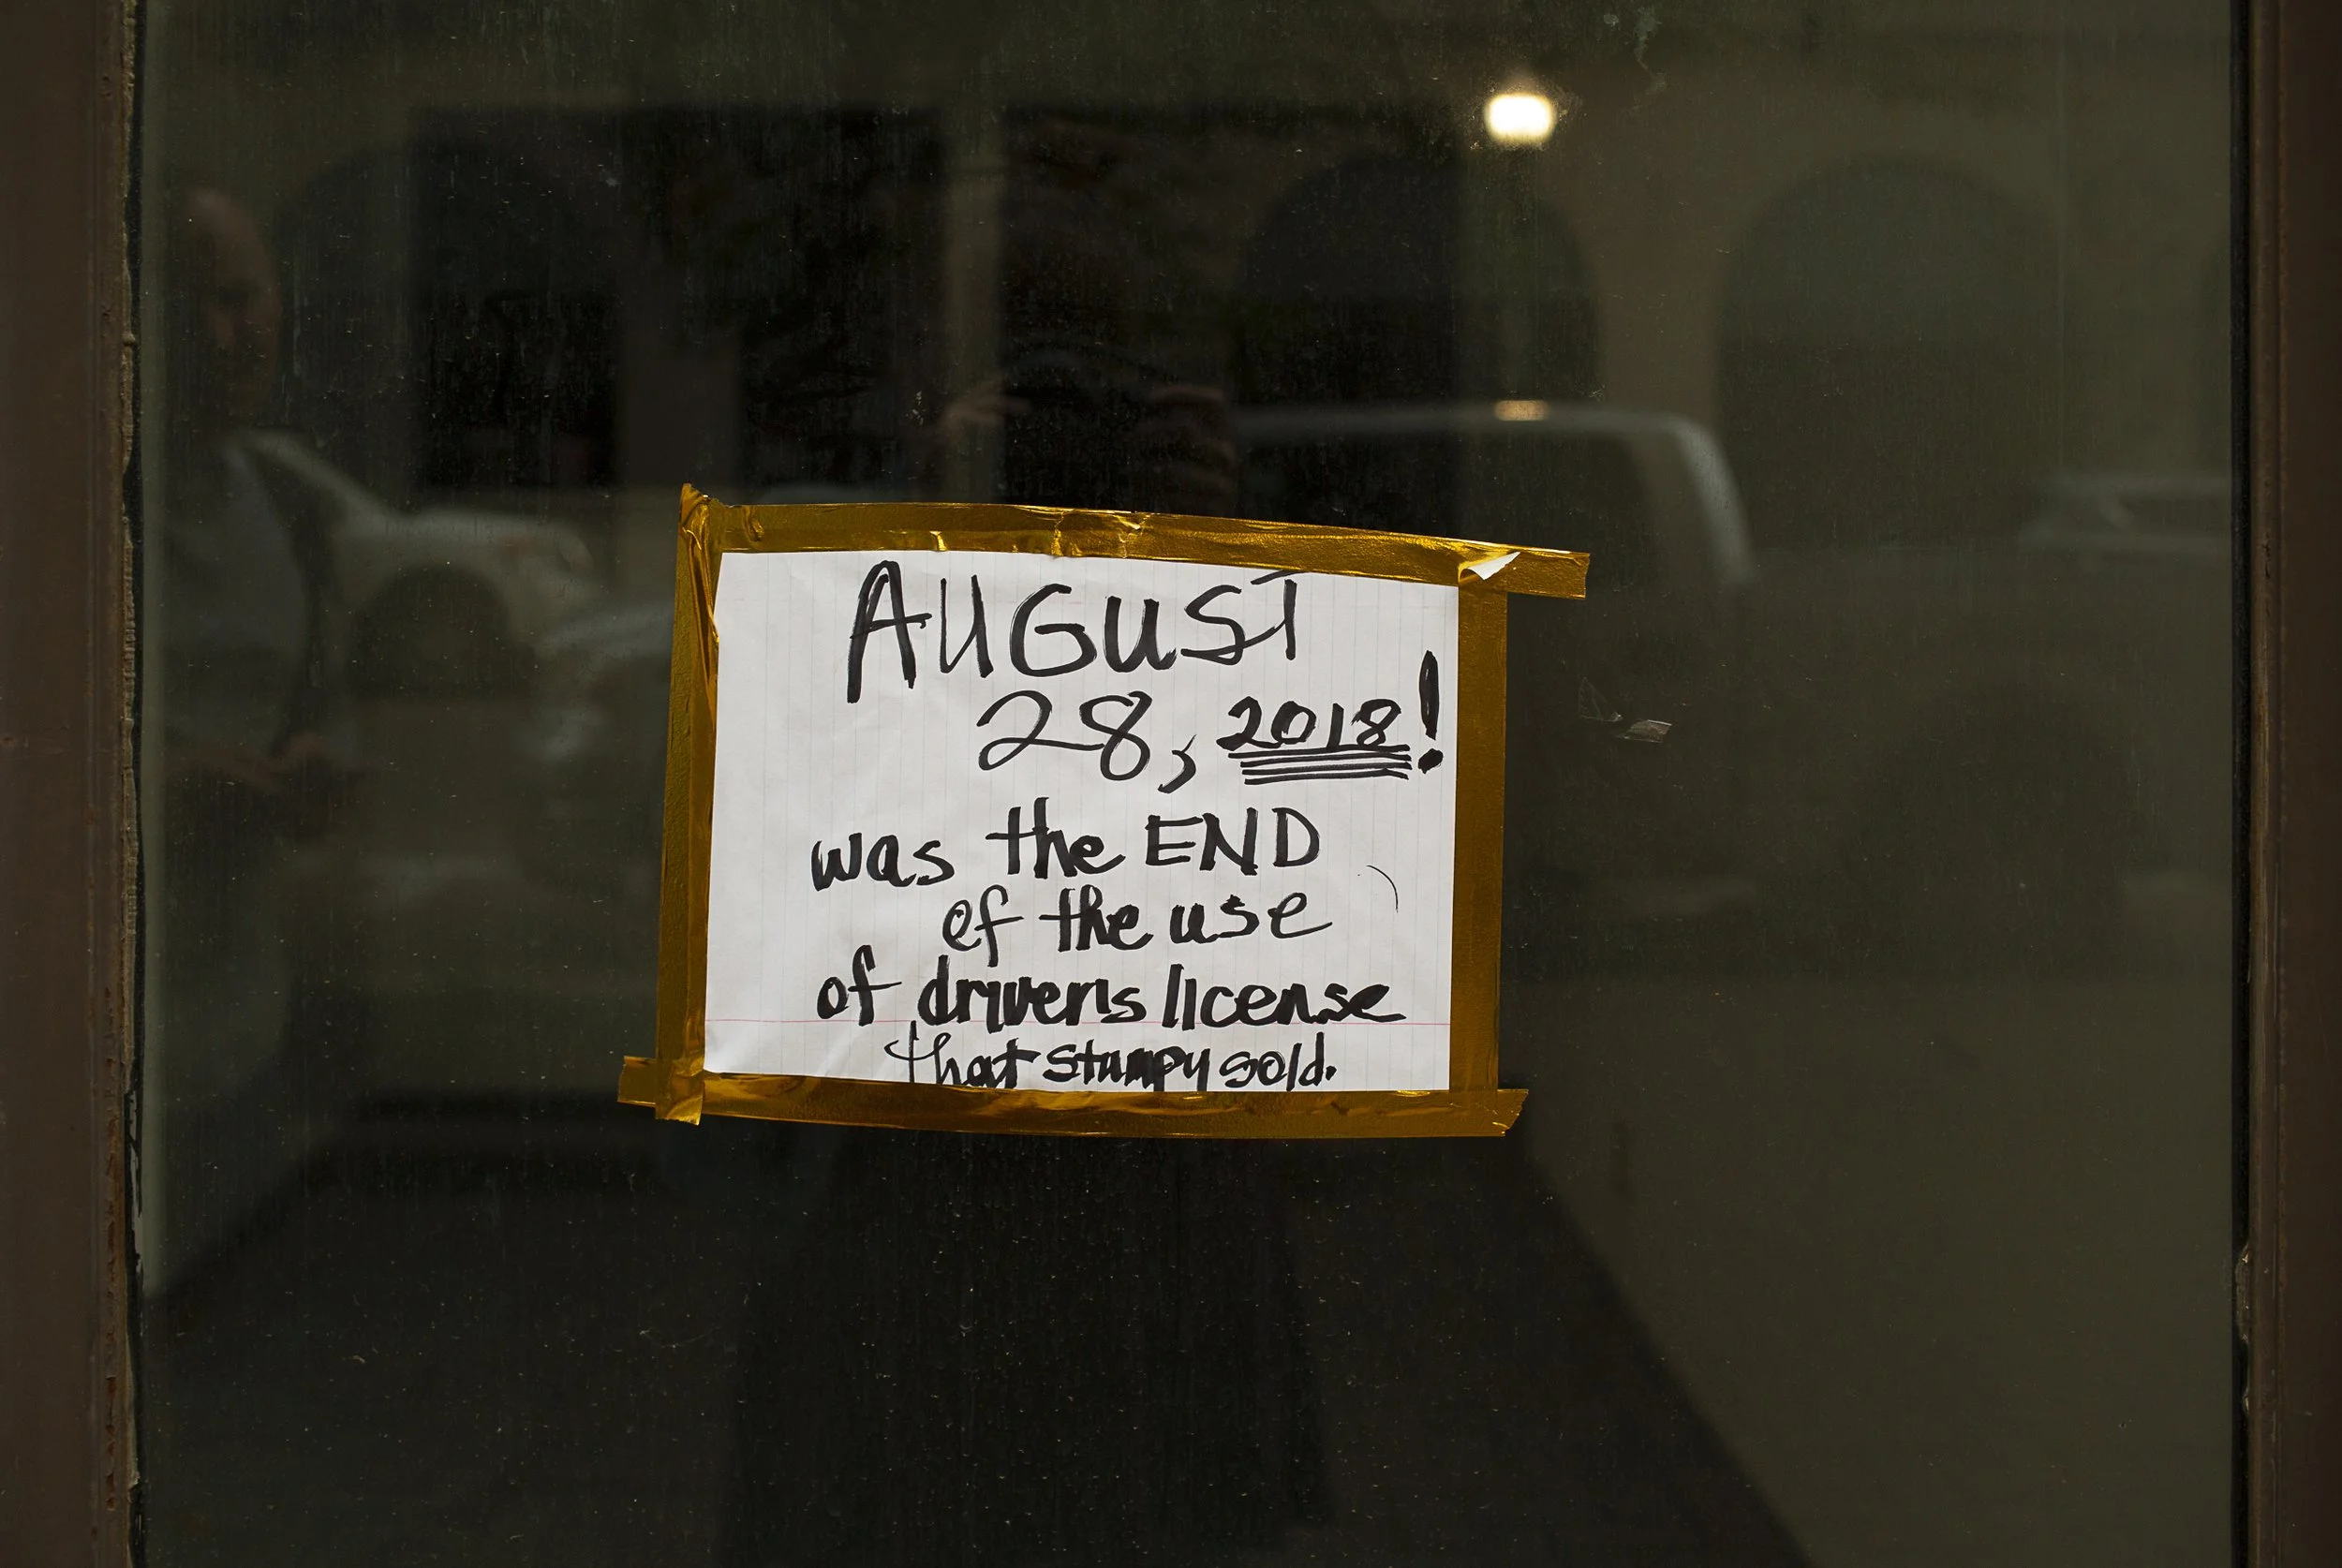 AUGUST
28, 2018!
was the END
of the use
of drivers license
that stumpy sold.